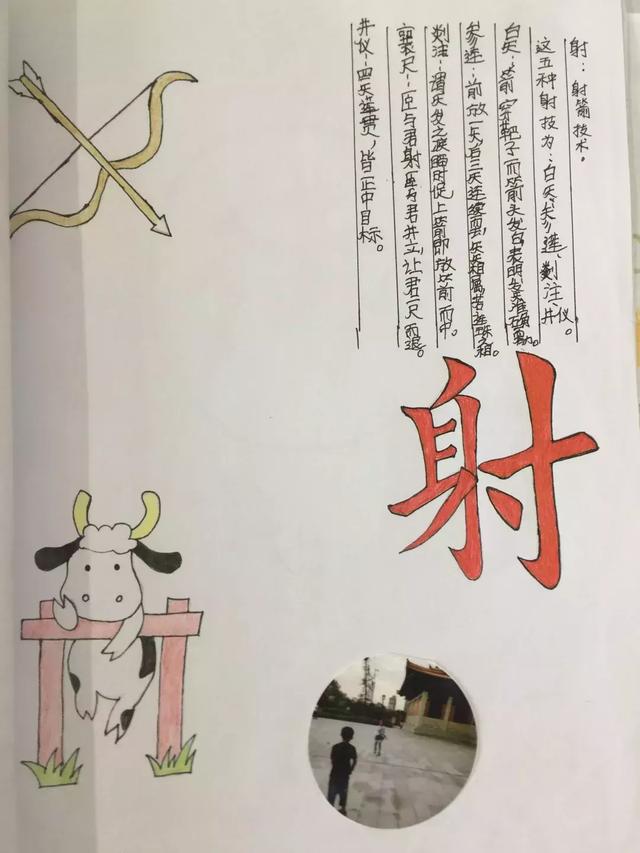 射：射箭技术。
这五种射技为：白矢、参连、剡注、井仪。
白矢：箭穿靶子而箭头发白，表明发矢准确
参连：前放一矢，后三矢连续而，矢矢相属，若连珠之相。
剡注：谓矢发之疾，瞬时促上箭即放箭而中。
襄尺：臣与君射，臣与君并立，让君一尺而退。
井仪：四矢连贯，皆正中目标。
射